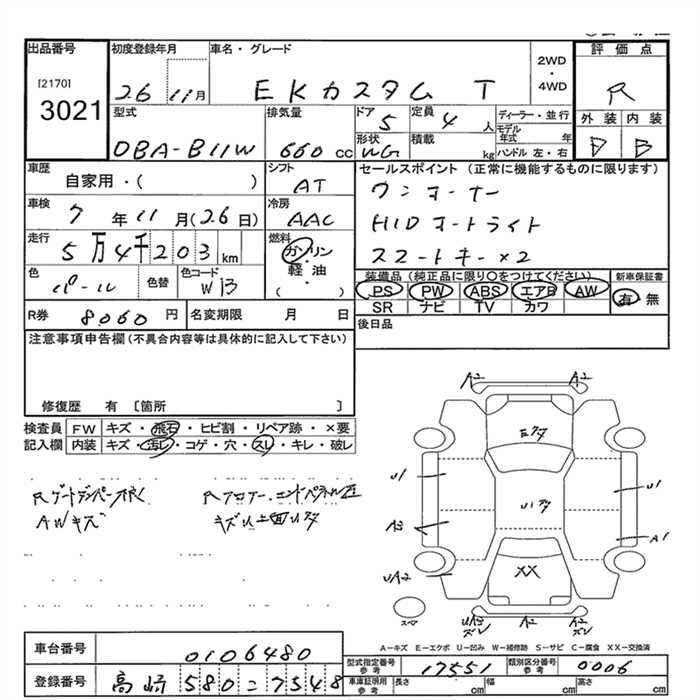 出品番号 初度登録年月 車名・グレード 2WD・4WD 評価点
[2170]
3021 26 11月 EKカスタム T R
型式 排気量 ドア 5 定員 4人 ディーラー・並行 外装 内装
DBA-B11W 660cc 形状 WG 積載 kg モデル年式 年 ハンドル 左・右 D D
車歴 シフト セールスポイント (正常に機能するものに限ります)
自家用・( ) AT ワンオーナー
車検 冷房 HIDオートライト
7年11月(26日) AAC スマートキー×2
走行 燃料
5万4千203km ガソリン・軽油・( )
色 パール 色替 色コード WB
装備品 (純正品に限り○をつけてください) 新車保証書
PS PW ABS エアB AW 有 無
SR ナビ TV カワ
R券 8060円 名変期限 月 日 後日品
注意事項申告欄(不具合内容等は具体的に記入して下さい)
修復歴 有 〔箇所 〕
検査員 FW キズ・飛石・ヒビ割・リペア跡・×要
記入欄 内装 キズ・汚レ・コゲ・穴・スレ・キレ・破レ
Rゲートダンパー抜く Rフロアー エンドパネル
AWキズ キズ
A2 A2
Eクタ
U1 Uクタ U1
A3 A1
UA2 XX
スペア UA3 ズレ A2 A2 ズレ
A-キズ E-エクボ U-凹み W-補修跡 S-サビ C-腐食 XX-交換済
車台番号 0106480
型式指定番号 参考 17551 類別区分番号 参考 0006
登録番号 高崎 580 ニ 7548
車庫証明用 参考 長さ cm 幅 cm 高さ cm